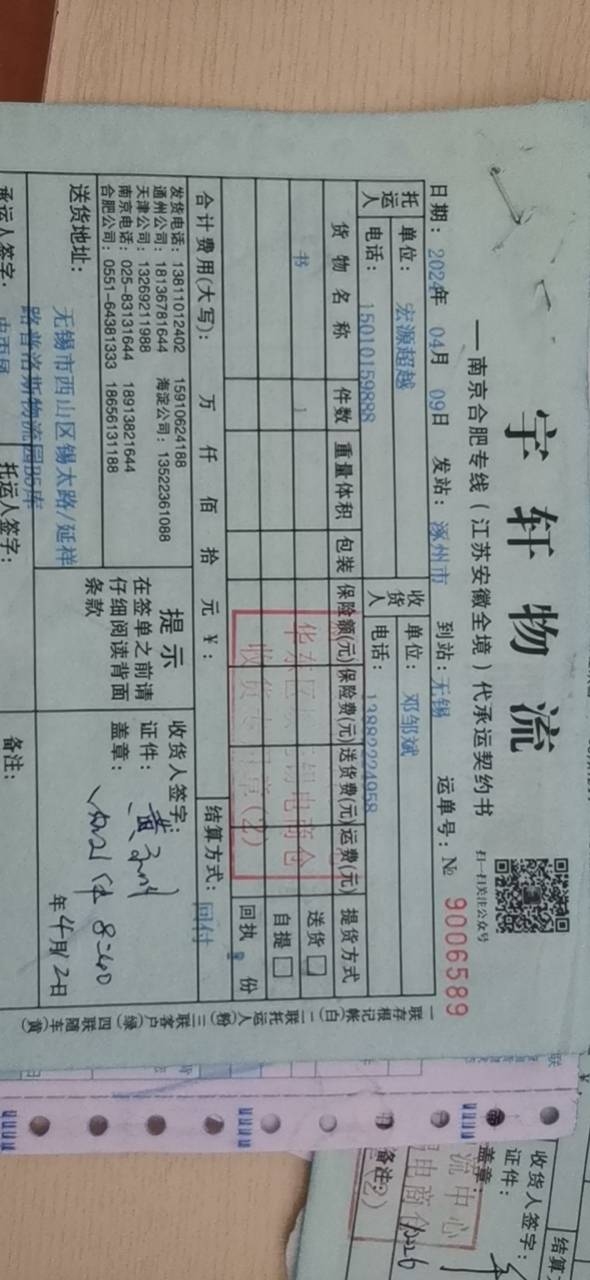 宇轩物流
—南京合肥专线（江苏安徽全境）代承运契约书
扫一扫关注公众号
日期：2024年 04月 09日 发站：涿州市 到站：无锡 运单号：№ 9006589
托运人 单位：宏源超越 收货人 单位：邓邹斌
电话：15010159888 电话：13882224958
货物名称 件数 重量体积 包装 保险额(元) 保险费(元) 送货费(元) 运费(元) 提货方式
书 1 送货□
自提□
回执 份
合计费用(大写)： 万 仟 佰 拾 元 ￥： 结算方式：回付
发货电话：13811012402 15910624188
通州公司：18136781644 海淀公司：13522361088
天津公司：13269211988
南京电话：025-83131644 18913821644
合肥公司：0551-64381333 18656131188
提示
在签单之前请
仔细阅读背面
条款
收货人签字：
证件：
盖章：
年4月12日
送货地址：无锡市西山区锡太路/延祥
路普洛斯物流园B5库
承运人签字：
托运人签字：
备注：
一联存根记帐(白) 二联托运人(粉) 三联客户(绿) 四联随车(黄)
收货人签字：
证件：
盖章：
备注：
流中心
电商仓
(2)